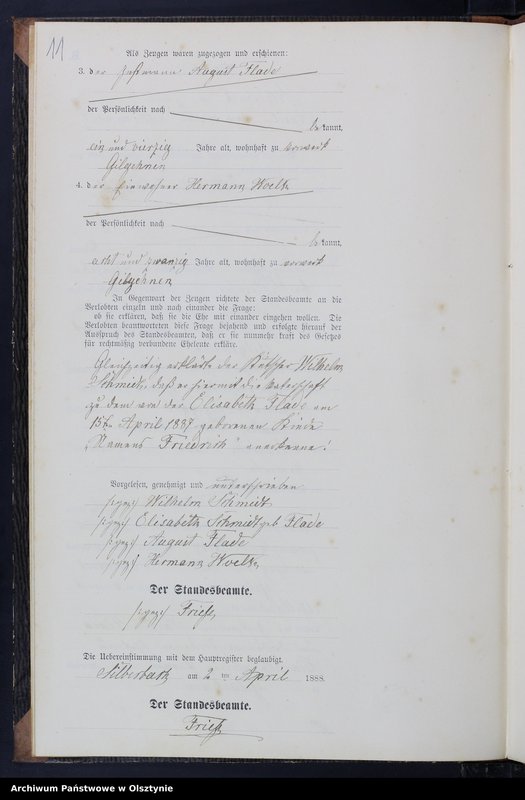 11
Als Zeugen waren zugezogen und erschienen:
3. der Instmann August Flade
der Persönlichkeit nach
bekannt,
ein und vierzig Jahre alt, wohnhaft zu Vorwerk
Gilgehnen
4. der Einwohner Hermann Woelk
der Persönlichkeit nach
bekannt,
acht und zwanzig Jahre alt, wohnhaft zu Vorwerk
Gilgehnen
In Gegenwart der Zeugen richtete der Standesbeamte an die
Verlobten einzeln und nach einander die Frage:
ob sie erklären, daß sie die Ehe mit einander eingehen wollen. Die
Verlobten beantworteten diese Frage bejahend und erfolgte hierauf der
Ausspruch des Standesbeamten, daß er sie nunmehr kraft des Gesetzes
für rechtmäßig verbundene Eheleute erkläre.
Gleichzeitig erklärte der Kutscher Wilhelm
Schmidt, daß er hiermit die Vaterschaft
zu dem von der Elisabeth Flade am
15t. April 1887 geborenen Kinde
Namens „Friedrich“ anerkenne!
Vorgelesen, genehmigt und unterschrieben
gez. Wilhelm Schmidt
gez. Elisabeth Schmidt geb Flade
gez. August Flade
gez. Hermann Woelk
Der Standesbeamte.
gez. Frieß
Die Uebereinstimmung mit dem Hauptregister beglaubigt.
Silberbach am 2 ten April 1888.
Der Standesbeamte.
Frieß
Archiwum Państwowe w Olsztynie